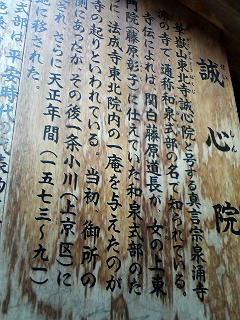 誠心院
華嶽山東北寺誠心院と号する真言宗泉涌寺
派の寺で通称和泉式部の名で知られている。
寺伝によれば、関白藤原道長が、女の上東
門院(藤原彰子)に仕えていた和泉式部のた
に、法成寺東北院内の一庵を与えたのが
寺の起りといわれている。当初 御所の
側にあったが、その後一条小川(上京区)に
され、さらに天正年間(一五七三〜九一)
地に移された。
式部は、平安時代の代表